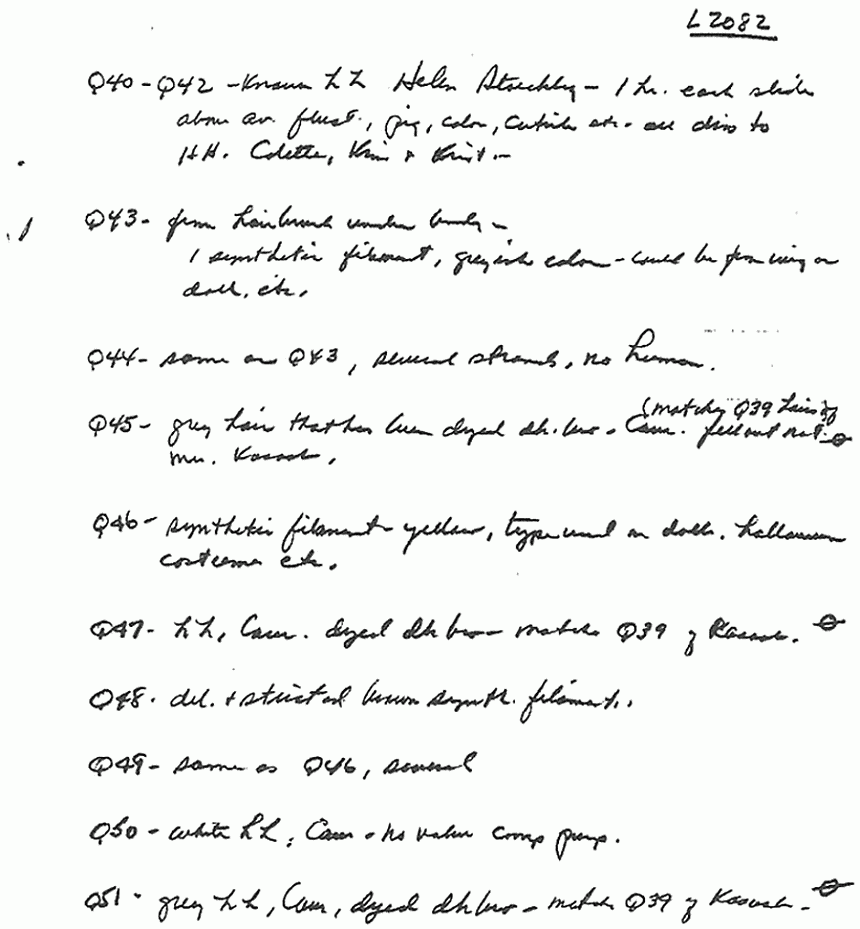 L2082
Q40-Q42 - Known hh Helen Stoeckley - 1 hr. each slide
above av. , pig, color, cuticle etc. - all diss to
HH. Colette, Kim & Krist. -
Q43 - from hairbrush under body -
1 synthetic filament, greyish color - could be from wig or
doll, etc.
Q44 - same as Q43, several strands, no human.
(matches Q39 hairs of
Q45 - grey hair that has been dyed dk. bro - Cauc. fell out nat.
Mrs. Kassab.
Q46 - synthetic filament yellow, type used on dolls, halloween
costume etc.
Q47 - hh, Cauc. dyed dk bro - matches Q39 of Kassab.
Q48 - del. & striated brown synth. filament.
Q49 - same as Q46, several
Q50 - white hh, Cauc - no value comp purp.
Q51 - grey hh, Cauc, dyed dk bro - match Q39 of Kassab -